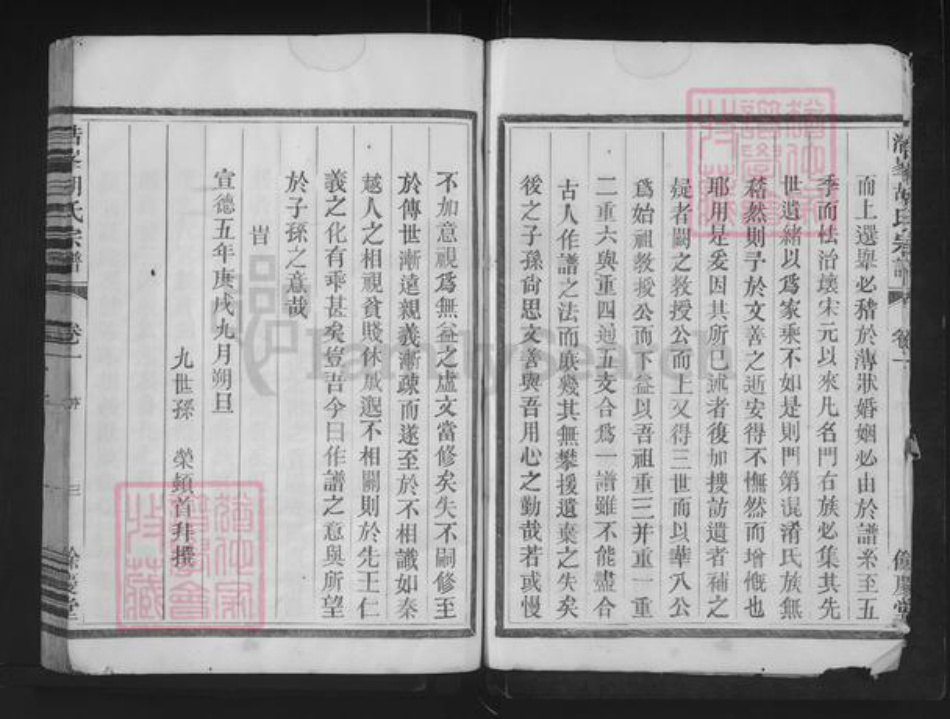 而上選舉必稽於簿狀婚姻必由於譜系至五
季而怯治壞宋元以來凡名門右族必集其先
世遺緒以為家乘不如是則門第混淆氏族無
稽然則予於文善之逝安得不憮然而增慨也
耶用是爰因其所已述者復加搜訪遺者補之
疑者闕之教授公而上又得三世而以華八公
爲始祖教授公而下益以吾祖重三并重一重
二重六與重四通五支合爲一譜雖不能盡合
古人作譜之法而庶幾其無攀援遺棄之失矣
後之子孫尙思文善與吾用心之勤哉若或慢
不加意視爲無益之虛文當修矣失不嗣修至
於傳世漸遠親義漸疎而遂至於不相識如秦
越人之相視貧賤休戚邈不相關則於先王仁
義之化有乖甚矣豈吾今日作譜之意與所望
於子孫之意哉
旹
宣德五年庚戌九月朔旦
九世孫 榮頓首拜撰
胡氏宗譜 卷一 序 三 餘慶堂
FamilySearch